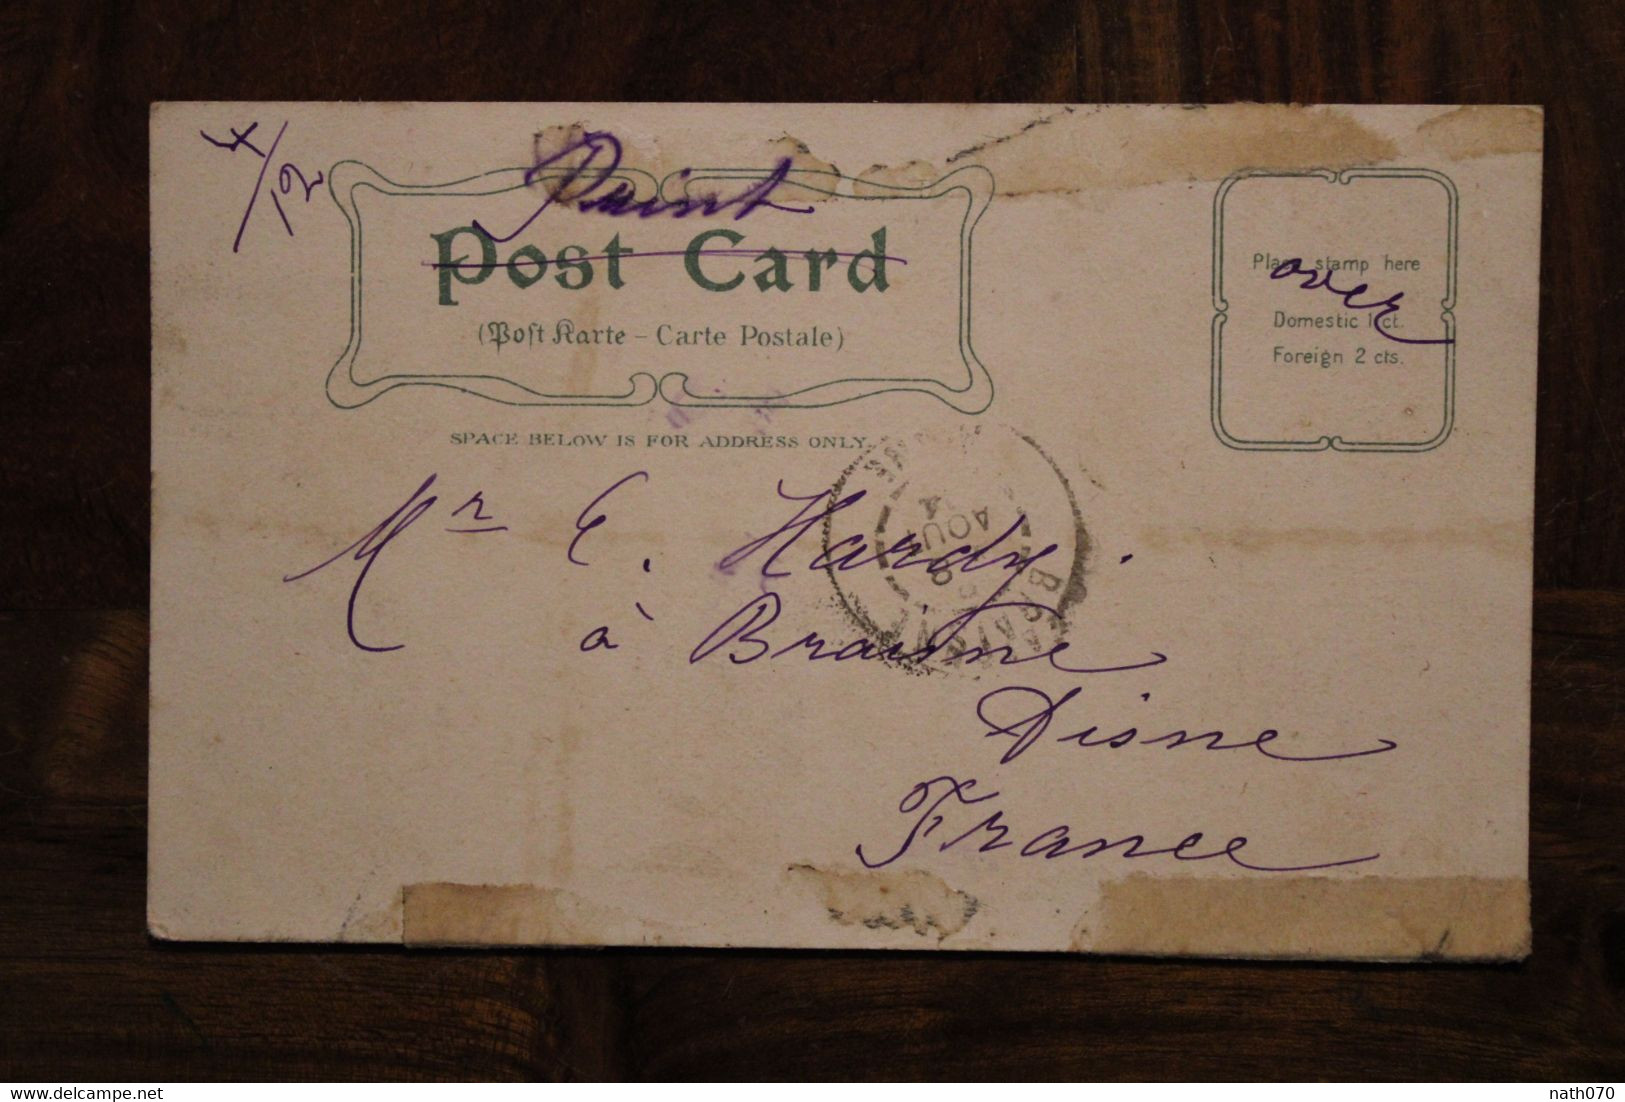 4/12
Print
Post Card
(Post Karte – Carte Postale)
Place stamp here
over
Domestic 1 ct.
Foreign 2 cts.
SPACE BELOW IS FOR ADDRESS ONLY.
Mr E. Hardy.
à Braisne
Aisne
France
AOUT
nath070